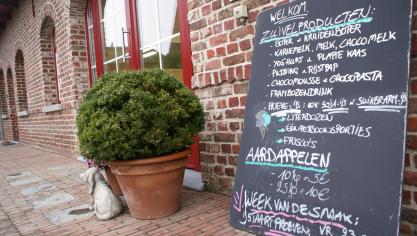 WELKOM
ZUIVELPRODUCTEN:
- BOTER & KRUIDENBOTER
- KARNEMELK, MELK, CHOCOMELK
- YOGHURT & PLATTE KAAS
- PUDDING & RIJSTPAP
- CHOCOMOUSSE & CHOCOPASTA
FRAMBOZENDRINK
- HOEVE IJS: 10x SOIJA-IJS & SUIKERARM IJS
- LITERDOZEN
- EENPERSOONSPORTIES
- FRISCO'S
AARDAPPELEN
- 10kg = 5€
- 25kg = 10€
WEEK VAN DE SMAAK: